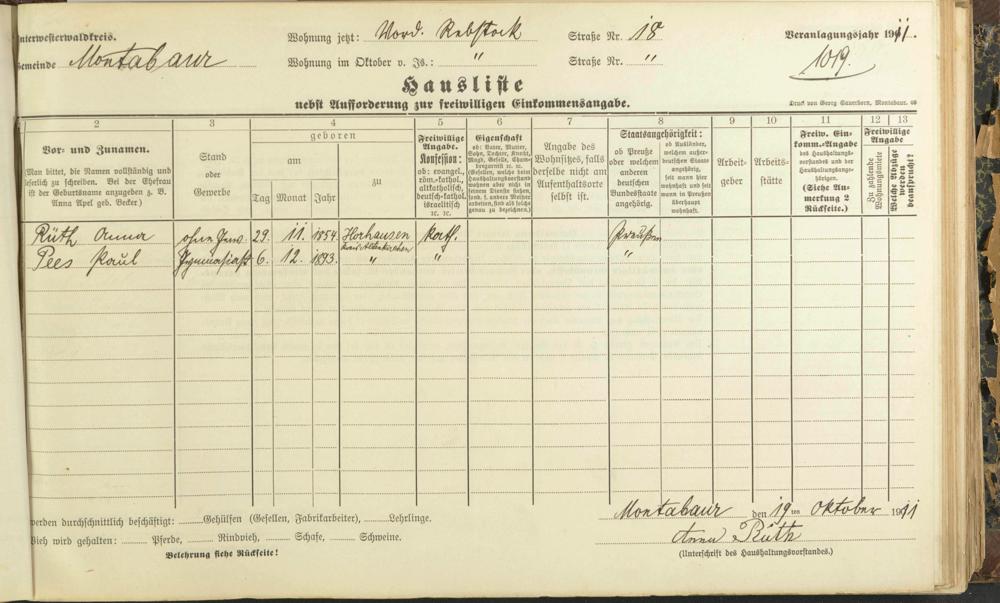 nterwesterwaldkreis. Wohnung jetzt: Vord. Rebstock Straße Nr. 18 Veranlagungsjahr 1911.
emeinde Montabaur Wohnung im Oktober v. Js.: " Straße Nr. " 1019.
Hausliste
nebst Aufforderung zur freiwilligen Einkommensangabe.
Druck von Georg Sauerborn, Montabaur.
2 3 4 5 6 7 8 9 10 11 12 13
Vor- und Zunamen.
(Man bittet, die Namen vollständig und
leserlich zu schreiben. Bei der Ehefrau
ist der Geburtsname anzugeben z. B.
Anna Apel geb. Becker.)
Stand
oder
Gewerbe
geboren
am
zu
Tag Monat Jahr
Freiwillige
Angabe.
Konfession:
ob: evangel.,
röm.-kathol.,
altkatholisch,
deutsch-kathol.
israelitisch
ꝛc. ꝛc.
Eigenschaft
ob: Vater, Mutter,
Sohn, Tochter, Knecht,
Magd, Geselle, Cham-
bregarnist ꝛc. ꝛc.
(Gesellen, welche beim
Haushaltungsvorstand
wohnen aber nicht in
seinem Dienste stehen,
sond. f. andere Meister
arbeiten, sind als solche
genau zu bezeichnen.)
Angabe des
Wohnsitzes, falls
derselbe nicht am
Aufenthaltsorte
selbst ist.
Staatsangehörigkeit:
ob Preuße
oder welchem
anderen
deutschen
Bundesstaate
angehörig.
ob Ausländer,
welchem außer-
deutschen Staate
angehörig,
seit wann hier
wohnhaft und seit
wann in Preußen
überhaupt
wohnhaft.
Arbeit-
geber
Arbeits-
stätte
Freiw. Ein-
komm.-Angabe
des Haushaltungs-
vorstandes und der
Haushaltungsange-
hörigen.
(Siehe An-
merkung 2
Rückseite.)
Freiwillige
Angabe
Zu zahlende
Wohnungsmiete
Welche Abzüge
werden
beansprucht?
Rüth Anna ohne Gew. 29. 11. 1854 Horhausen kath. Preußen
Kreis Altenkirchen
Pees Paul Gymnasiast 6. 12. 1893. " " "
Montabaur den 19 ten Oktober 1911
werden durchschnittlich beschäftigt: Gehülfen (Gesellen, Fabrikarbeiter), Lehrlinge.
Anna Rüth
Vieh wird gehalten: Pferde, Rindvieh, Schafe, Schweine.
(Unterschrift des Haushaltungsvorstandes.)
Belehrung siehe Rückseite!